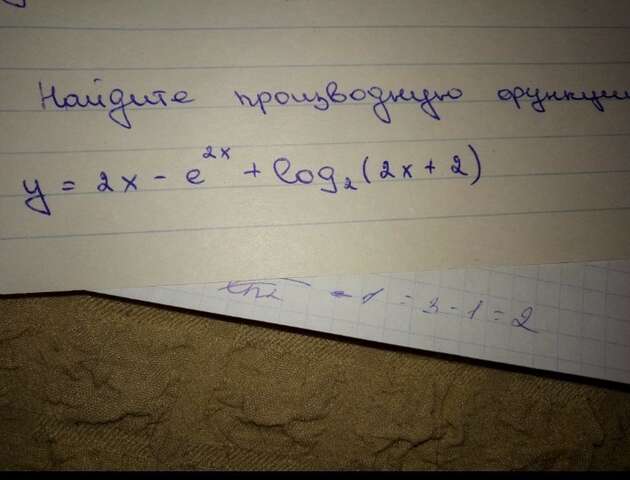 Найдите производную функции
y = 2x - e^2x + log₂(2x + 2)
= 3 - 1 = 2